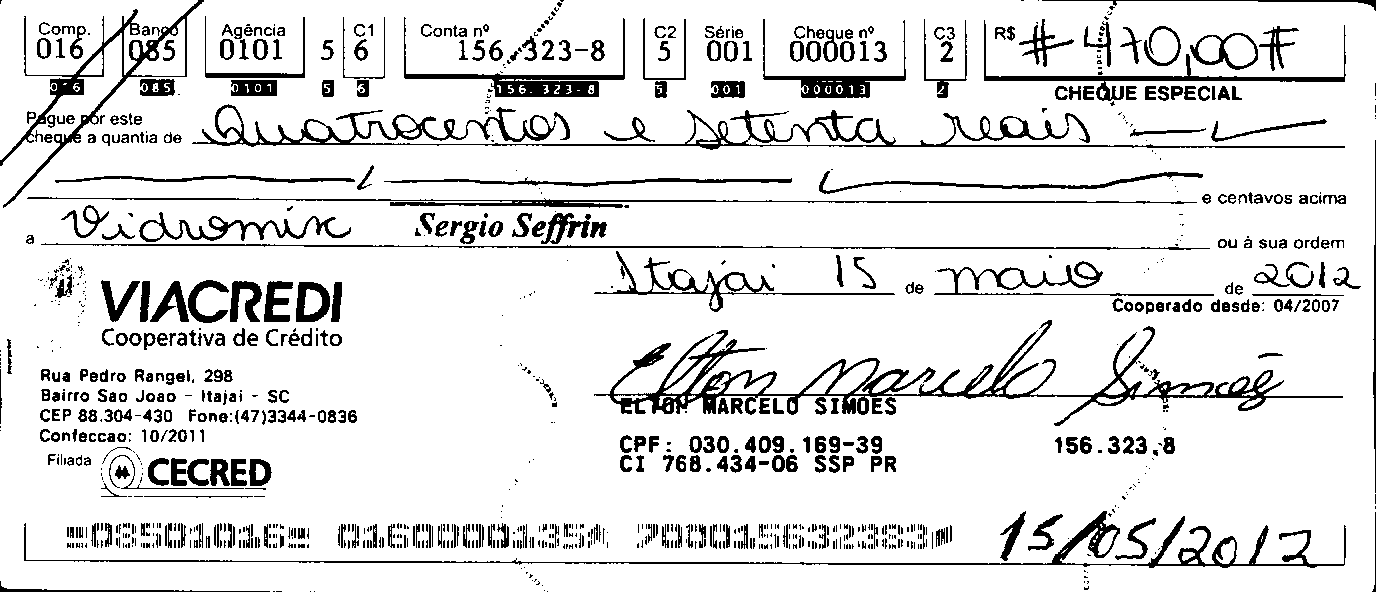 Comp. Banco Agência C1 Conta nº C2 Série Cheque nº C3 R$
016 085 0101 5 6 156.323-8 5 001 000013 2 #470,00#
016 085 0101 5 6 156.323-8 5 001 000013 2 CHEQUE ESPECIAL
Pague por este
cheque a quantia de Quatrocentos e setenta reais
e centavos acima
a Vidromix Sergio Seffrin ou à sua ordem
Itajai 15 de maio de 2012
Cooperado desde: 04/2007
VIACREDI
Cooperativa de Crédito
Elton Marcelo Simões
Rua Pedro Rangel, 298
Bairro Sao Joao - Itajai - SC
CEP 88.304-430 Fone:(47)3344-0836
Confeccao: 10/2011
ELTON MARCELO SIMOES
CPF: 030.409.169-39 156.323.8
CI 768.434-06 SSP PR
Filiada CECRED
15/05/2012